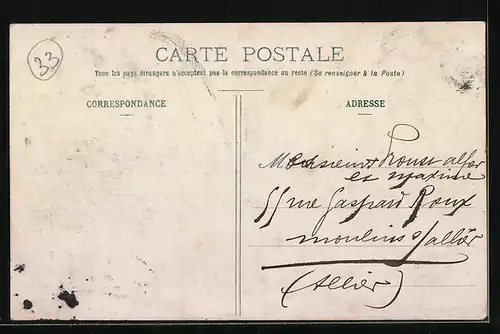 33
CARTE POSTALE
Tous les pays étrangers n'acceptent pas la correspondance au recto (Se renseigner à la Poste)
CORRESPONDANCE
ADRESSE
Monsieur
et maxime
rue Gaspard Roux
moulins s/allier
(Allier)